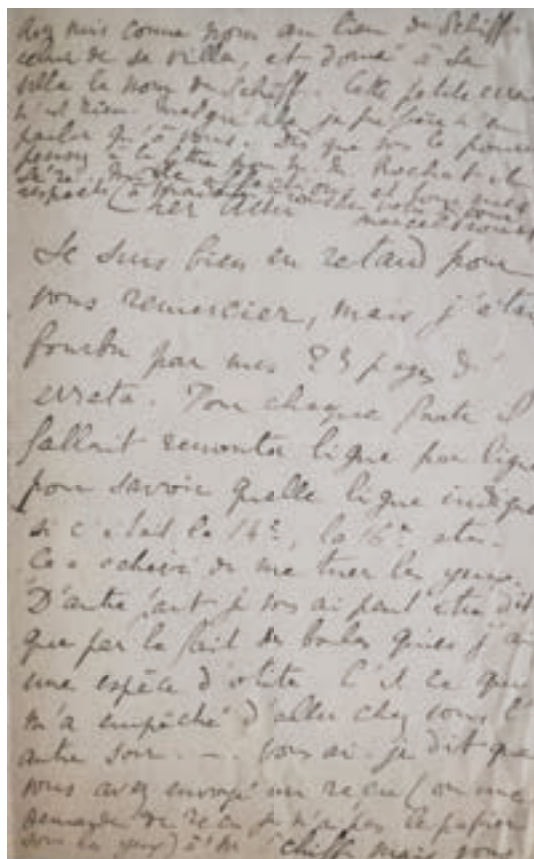 avez mis comme nom au lieu de Schiff
celui de sa villa, et donné à sa
villa le nom de Schiff. Cette petite erreur
n'est rien
parler qu'à vous. Dès que vous le pourrez
pensez à la lettre pour M. de Rochat et
respects à
Marcel Proust
Cher Ami
Je suis bien en retard pour
vous remercier, mais j'étais
fourbu par mes 23 pages d'
errata. Pour chaque faute il
fallait remonter ligne par ligne
pour savoir quelle ligne
si c'était la 14e, la 16e etc.
Ça a achevé de me tuer les yeux.
D'autre part je vous ai peut-être dit
que par le fait des boules quies j'ai
une espèce d'otite. C'est ce qui
m'a empêché d'aller chez vous l'
autre soir. — . Vous ai-je dit que
vous avez envoyé un reçu (ou une
demande de reçu je n'ai pas le papier
sous les yeux) à M. Schiff mais vous